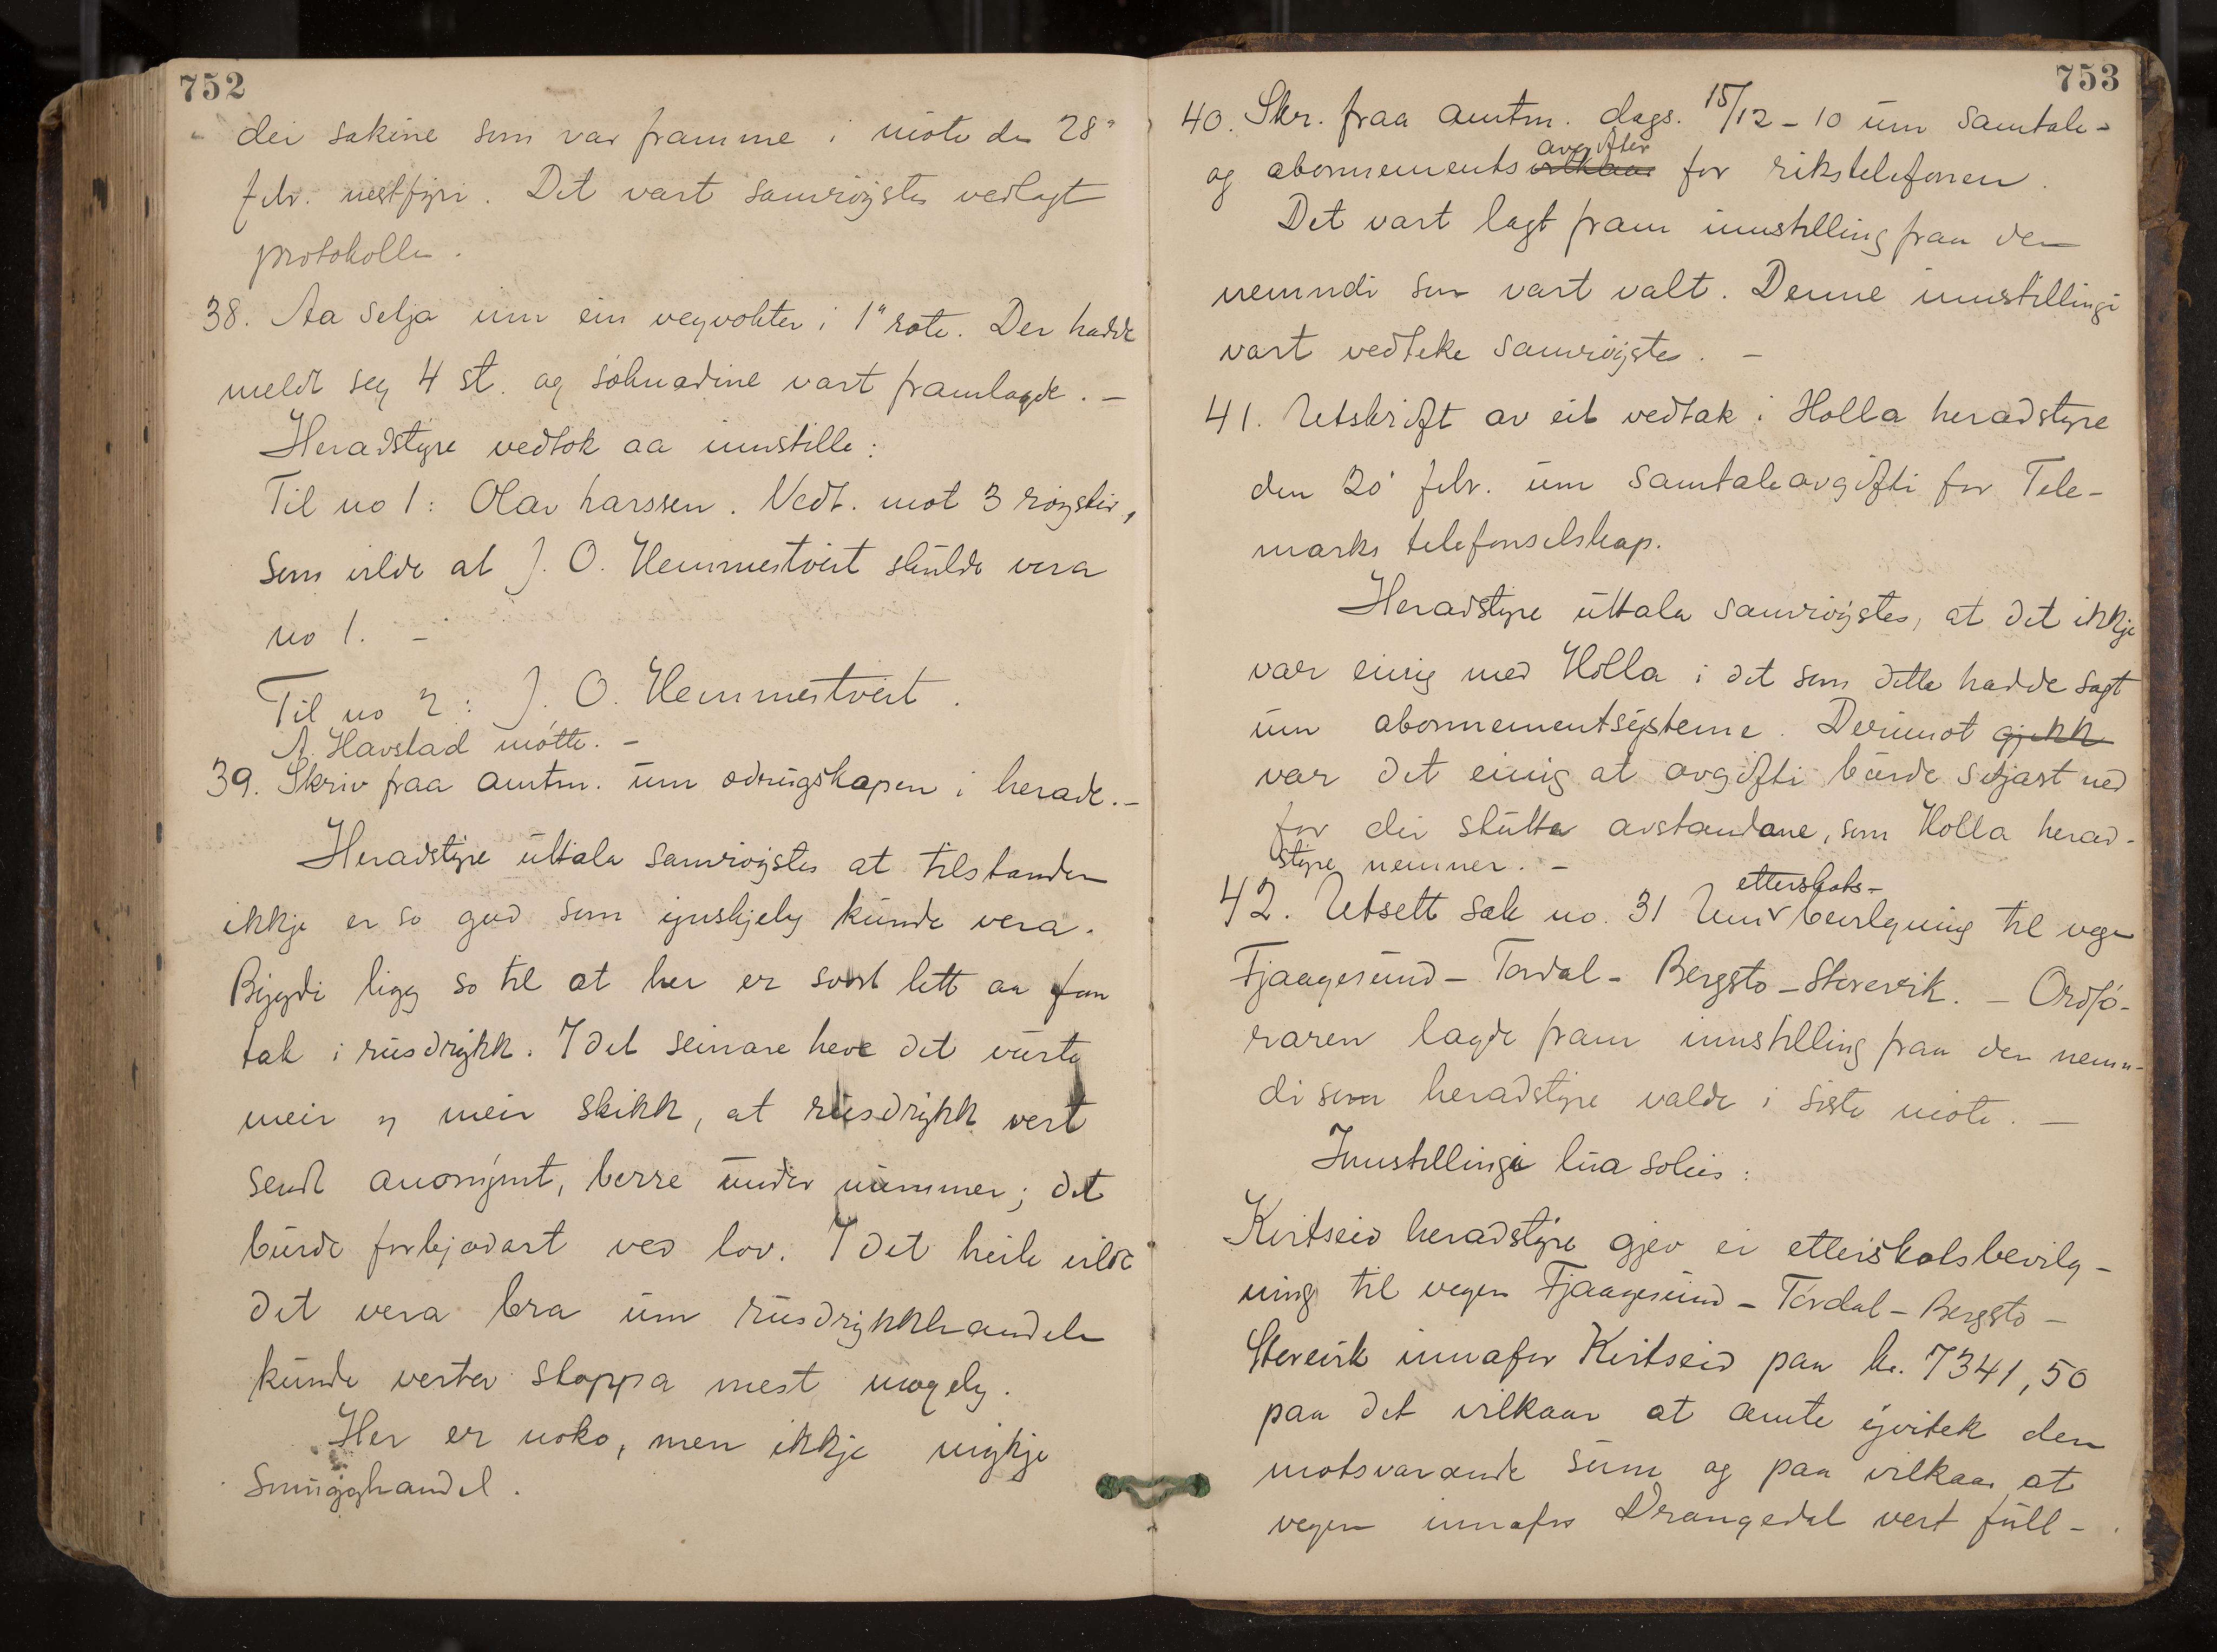 752
dei sakine som var framme i møte den 28'
febr. nestfyri. Det vart samrøystes vedlagt
protokollen.
38. Aa selja um ein vegvokter i 1" rote. Der hadde
meldt seg 4 st. og søknadine vart framlagde. –
Heradstyre vedtok aa innstille:
Til no 1: Olav Larssen. Vedt. mot 3 røyster,
som vilde at J. O. Hemmestveit skulde vera
no 1. –
Til no 2: J. O. Hemmestveit.
A. Havstad møtte. –
39. Skriv fraa amtm. um ædrugskapen i herade. –
Heradstyre uttala samrøystes at tilstanden
ikkje er so god som ynskjeleg kunde vera.
Bygdi ligg so til at her er svært lett aa faa
tak i rusdrykk. I det seinare heve det vorte
meir og meir skikk, at rusdrykk vert
sendt anonymt, berre under nummer; det
burde forbjodast ved lov. I det heile vilde
det vera bra um rusdrykkhandelen
kunde verta stoppa mest mogeleg.
Her er noko, men ikkje mykje
smugghandel.
753
40. Skr. fraa amtm. dags. 15/12 – 10 um samtale-
avgifter
og abonnements vilkaar for rikstelefonen.
Det vart lagt fram innstilling fraa den
nemndi som vart valt. Denne innstillingi
vart vedteke samrøystes. –
41. Utskrift av eit vedtak i Holla heradstyre
den 20' febr. um samtaleavgifti for Tele-
marks telefonselskap.
Heradstyre uttala samrøystes, at det ikkje
var einig med Holla i det som dette hadde sagt
um abonnementsysteme. Derimot gjekk
var det einig at avgifti burde setjast ned
for dei stutte avstandane, som Holla herad-
styre nemner. –
etterskots-
42. Utsett sak no. 31 Um bevilgning til vegen
Fjaagesund – Tørdal – Bergsto – Sterevik. – Ordfø-
raren lagde fram innstilling fraa den nemn-
di som heradstyre valde i siste møte. –
Innstillingi lua soleis:
Kvitseid heradstyre gjev ei etterskotsbevilg-
ning til vegen Fjaagesund – Tørdal – Bergsto –
Sterevik innafor Kvitseid paa kr. 7341,50
paa det vilkaar at amte yvitek den
motsvarande sum og paa vilkaar at
vegen innafor Drangedal vert full-